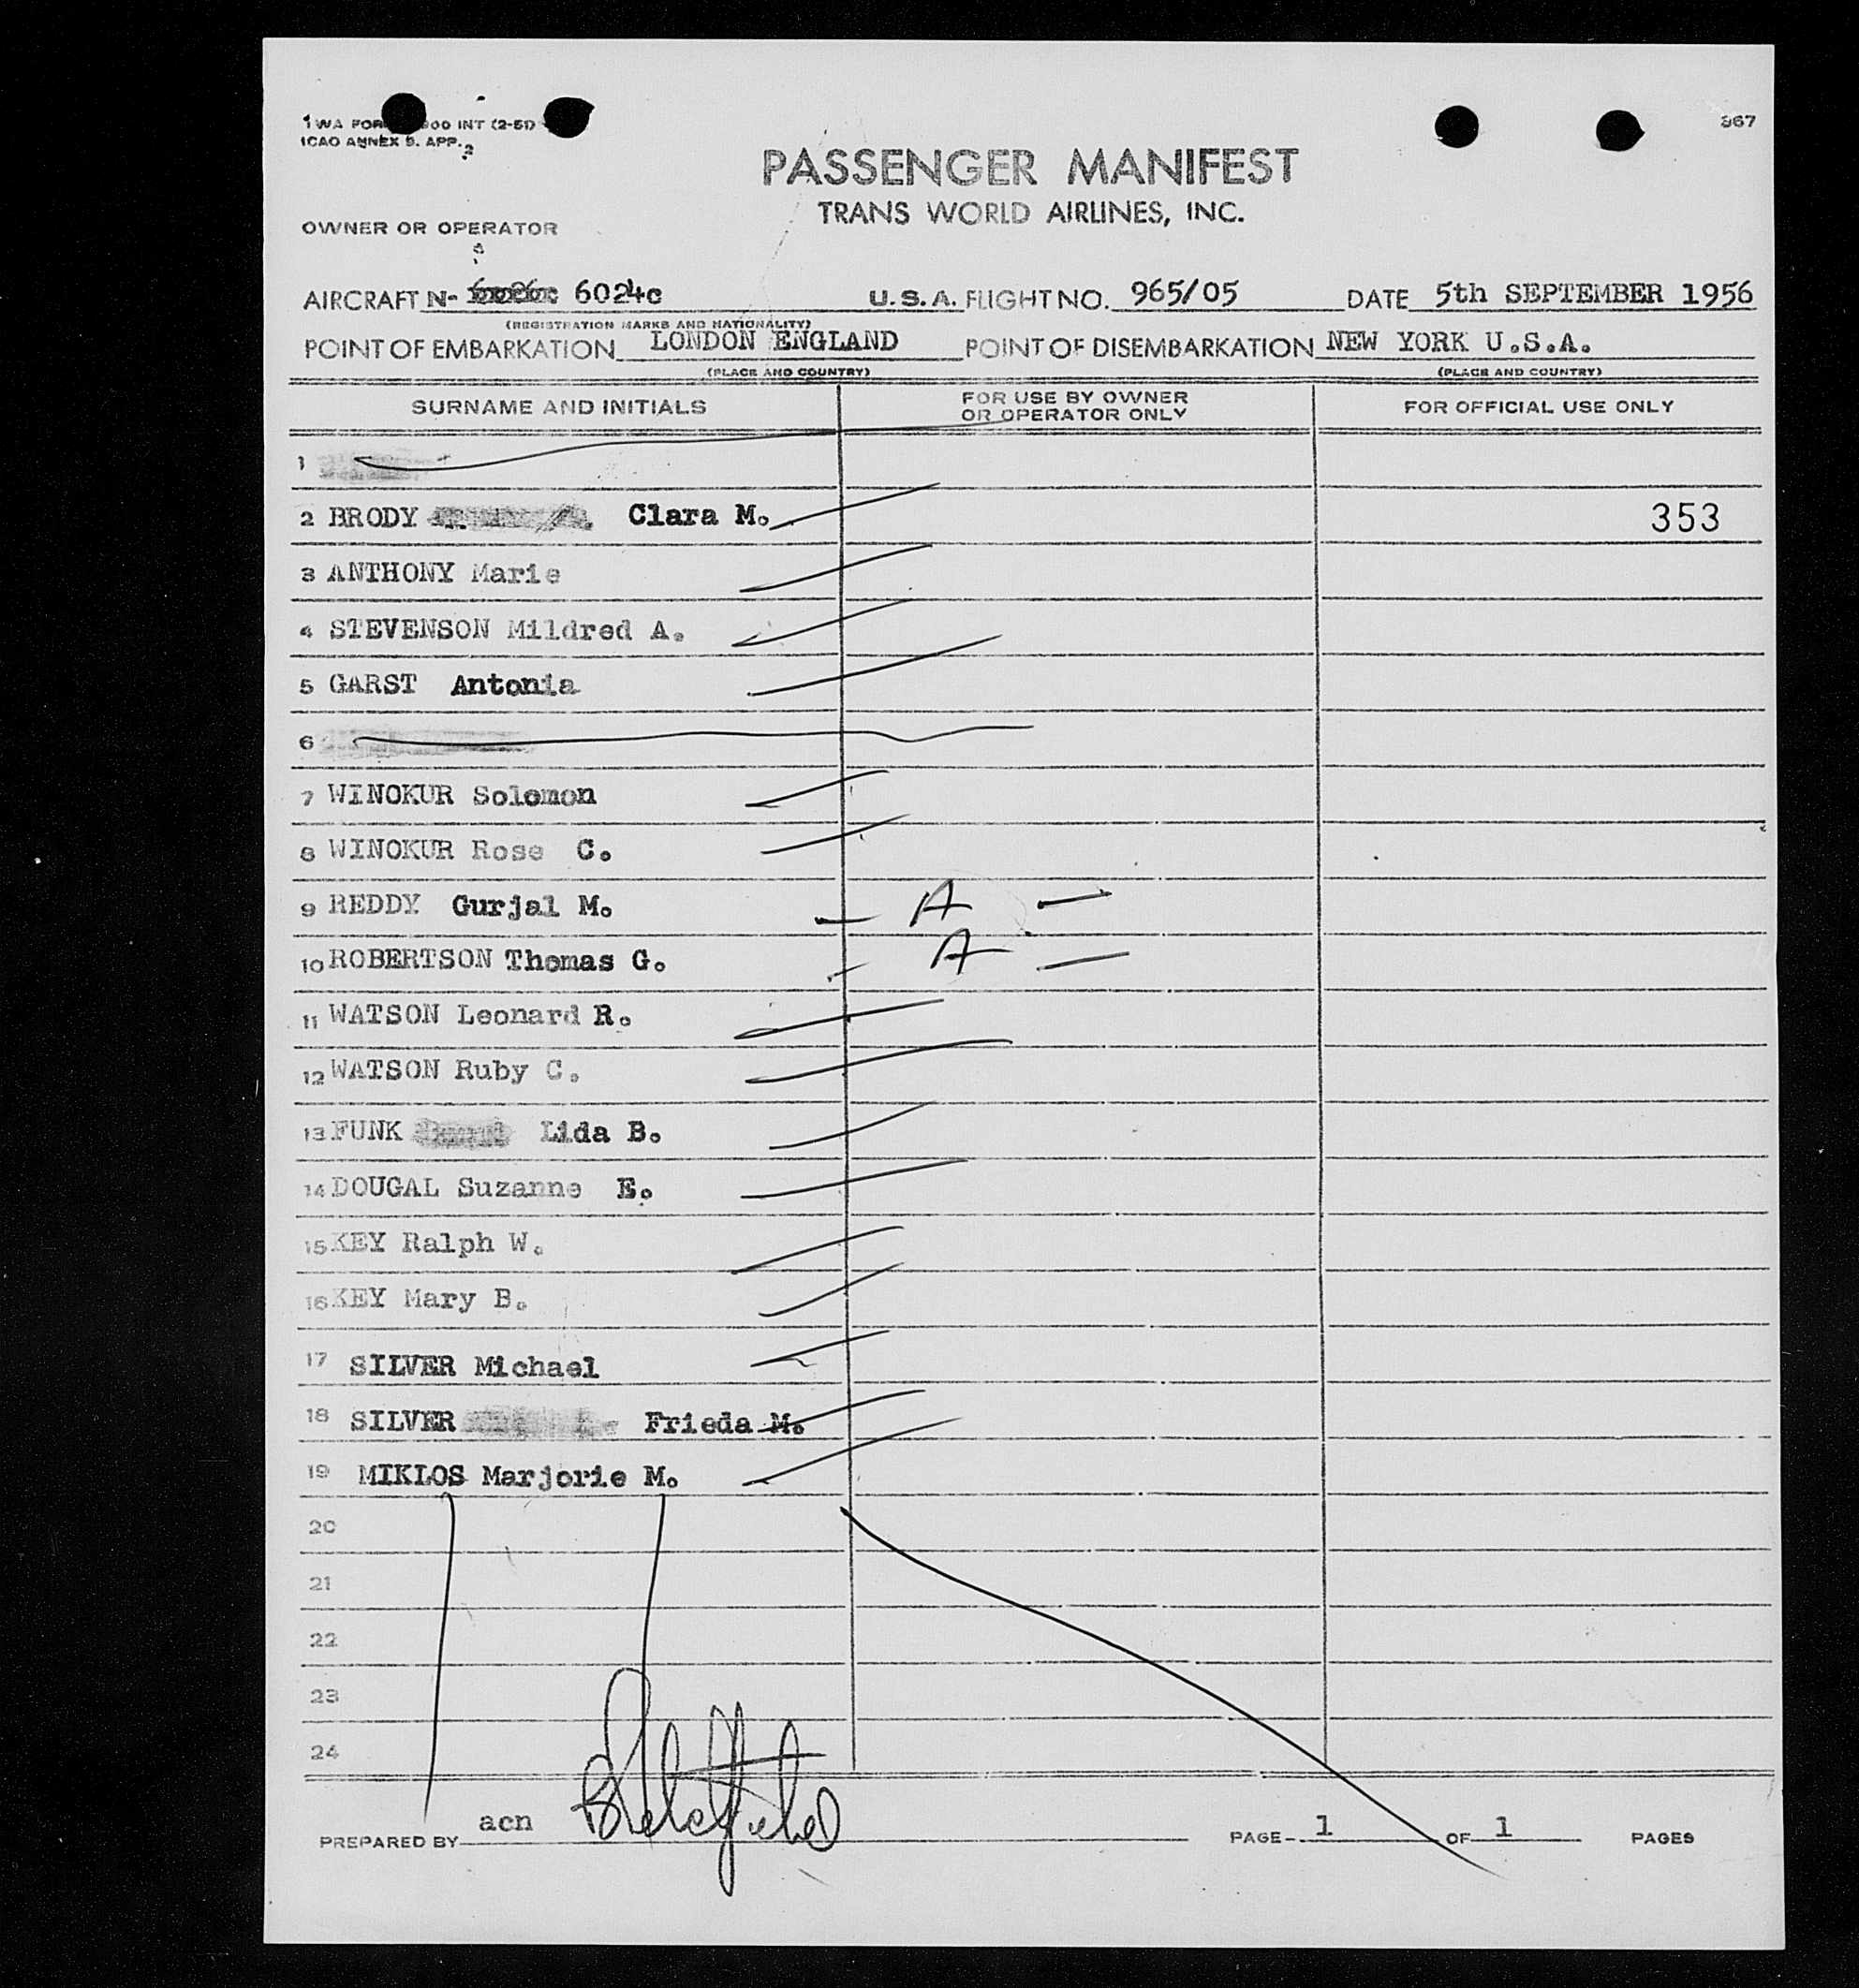 TWA FOR 00 INT (2-51)
ICAO ANNEX 9. APP. 2
867
PASSENGER MANIFEST
TRANS WORLD AIRLINES, INC.
OWNER OR OPERATOR
AIRCRAFT N- 6024c U.S.A. FLIGHT NO. 965/05 DATE 5th SEPTEMBER 1956
(REGISTRATION MARKS AND NATIONALITY)
POINT OF EMBARKATION LONDON ENGLAND POINT OF DISEMBARKATION NEW YORK U.S.A.
(PLACE AND COUNTRY) (PLACE AND COUNTRY)
SURNAME AND INITIALS FOR USE BY OWNER OR OPERATOR ONLY FOR OFFICIAL USE ONLY
1
2 BRODY Clara M. 353
3 ANTHONY Marie
4 STEVENSON Mildred A.
5 GARST Antonia
6
7 WINOKUR Solomon
8 WINOKUR Rose C.
9 REDDY Gurjal M. — A —
10 ROBERTSON Thomas G. — A —
11 WATSON Leonard R.
12 WATSON Ruby C.
13 FUNK Lida B.
14 DOUGAL Suzanne E.
15 KEY Ralph W.
16 KEY Mary B.
17 SILVER Michael
18 SILVER Frieda M.
19 MIKLOS Marjorie M.
20
21
22
23
24
PREPARED BY acn PAGE 1 OF 1 PAGES